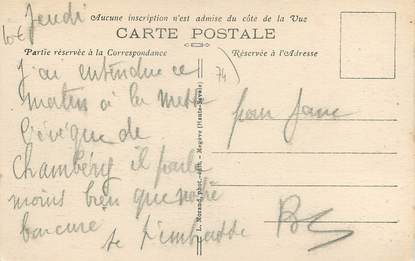 Jeudi
10€
Aucune inscription n'est admise du côté de la Vue
CARTE POSTALE
Partie réservée à la Correspondance
Réservée à l'Adresse
74
j'ai entendue ce
matin à la messe
l'évêque de
Chambéry il parle
moins bien que notre
je t'embrasse
pour Jane
L. Morand, phot.-édit. - Megève (Haute-Savoie)